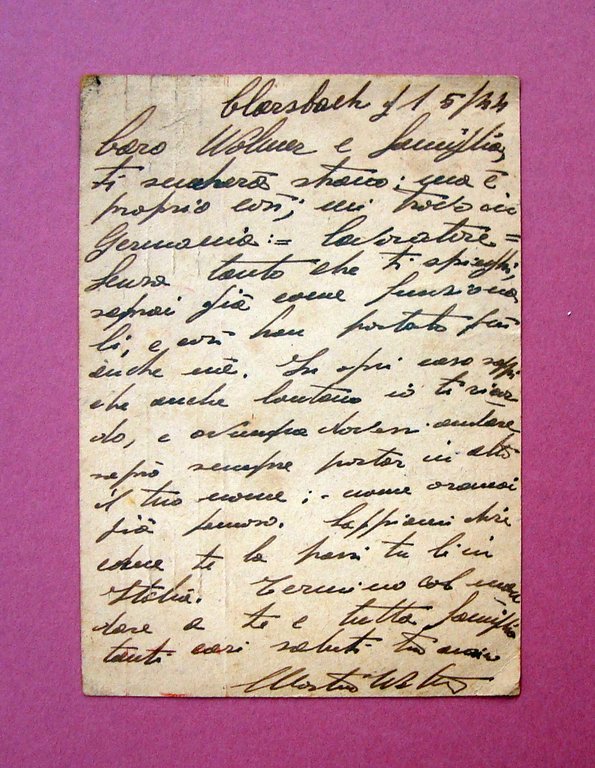 Clarsbach f 1 5/44
Caro Wolmer e famiglia,
ti sembrerà strano; ma è
proprio così; mi trovo in
Germania := lavoratore =
Senza tanto che ti spieghi,
saprai già come funziona
lì, e così han portato giù
anche me. In ogni caso sappi
che anche lontano io ti ricor
do, e ovunque dovessi andare
saprò sempre portar in alto
il tuo nome; - nome oramai
già famoso. Sappiami dire
come te la passi tu lì in
Italia. Termino col man
dare a te e tutta famiglia
tanti cari saluti tuo amico